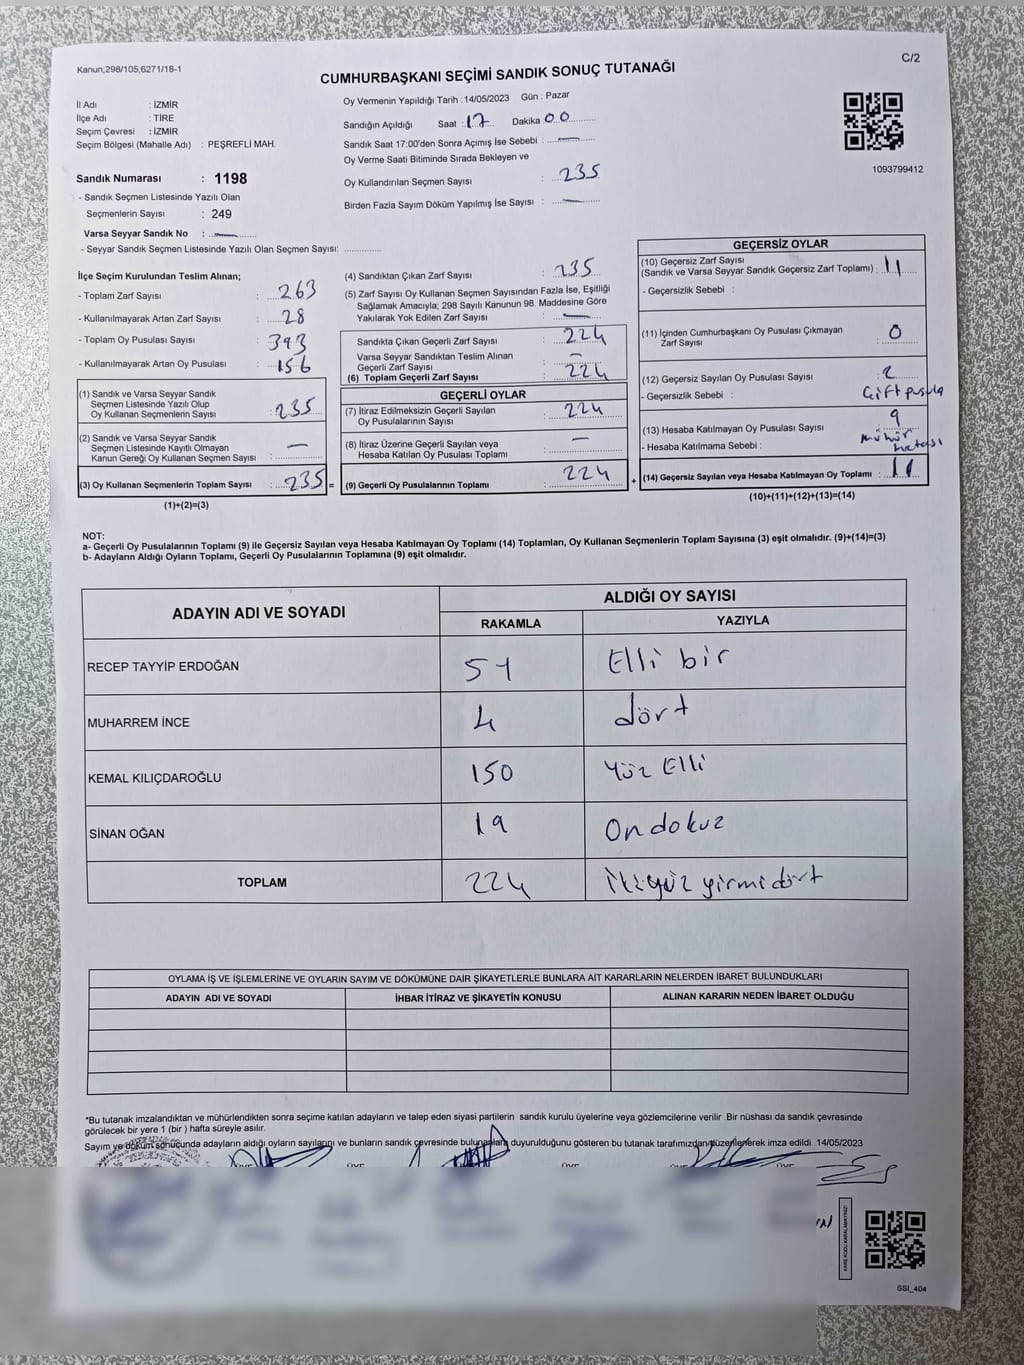 Kanun;298/105;6271/18-1
C/2
CUMHURBAŞKANI SEÇİMİ SANDIK SONUÇ TUTANAĞI
İl Adı : İZMİR
İlçe Adı : TİRE
Seçim Çevresi : İZMİR
Seçim Bölgesi (Mahalle Adı) : PEŞREFLİ MAH.
Sandık Numarası : 1198
- Sandık Seçmen Listesinde Yazılı Olan
Seçmenlerin Sayısı : 249
Varsa Seyyar Sandık No :
- Seyyar Sandık Seçmen Listesinde Yazılı Olan Seçmen Sayısı:
Oy Vermenin Yapıldığı Tarih : 14/05/2023 Gün : Pazar
Sandığın Açıldığı Saat : 17 Dakika 00
Sandık Saat 17:00'den Sonra Açımış İse Sebebi : —
Oy Verme Saati Bitiminde Sırada Bekleyen ve
Oy Kullandırılan Seçmen Sayısı : 235
Birden Fazla Sayım Döküm Yapılmış İse Sayısı : —
1093799412
İlçe Seçim Kurulundan Teslim Alınan;
- Toplam Zarf Sayısı : 263
- Kullanılmayarak Artan Zarf Sayısı : 28
- Toplam Oy Pusulası Sayısı : 393
- Kullanılmayarak Artan Oy Pusulası : 156
(1) Sandık ve Varsa Seyyar Sandık
Seçmen Listesinde Yazılı Olup
Oy Kullanan Seçmenlerin Sayısı : 235
(2) Sandık ve Varsa Seyyar Sandık
Seçmen Listesinde Kayıtlı Olmayan
Kanun Gereği Oy Kullanan Seçmen Sayısı : —
(3) Oy Kullanan Seçmenlerin Toplam Sayısı : 235 =
(1)+(2)=(3)
(4) Sandıktan Çıkan Zarf Sayısı : 235
(5) Zarf Sayısı Oy Kullanan Seçmen Sayısından Fazla İse, Eşitliği
Sağlamak Amacıyla; 298 Sayılı Kanunun 98. Maddesine Göre
Yakılarak Yok Edilen Zarf Sayısı : —
Sandıkta Çıkan Geçerli Zarf Sayısı : 224
Varsa Seyyar Sandıktan Teslim Alınan
Geçerli Zarf Sayısı : —
(6) Toplam Geçerli Zarf Sayısı : 224
GEÇERLİ OYLAR
(7) İtiraz Edilmeksizin Geçerli Sayılan
Oy Pusulası Sayısı : 224
(8) İtiraz Üzerine Geçerli Sayılan veya
Hesaba Katılan Oy Pusulası Toplamı : —
(9) Geçerli Oy Pusulalarının Toplamı : 224 +
GEÇERSİZ OYLAR
(10) Geçersiz Zarf Sayısı
(Sandık ve Varsa Seyyar Sandık Geçersiz Zarf Toplamı) : 11
- Geçersizlik Sebebi :
(11) İçinden Cumhurbaşkanı Oy Pusulası Çıkmayan
Zarf Sayısı : 0
(12) Geçersiz Sayılan Oy Pusulası Sayısı : 2
- Geçersizlik Sebebi : Çift pusula
(13) Hesaba Katılmayan Oy Pusulası Sayısı : 9
- Hesaba Katılmama Sebebi : mühür hatası
(14) Geçersiz Sayılan veya Hesaba Katılmayan Oy Toplamı : 11
(10)+(11)+(12)+(13)=(14)
NOT:
a- Geçerli Oy Pusulalarının Toplamı (9) ile Geçersiz Sayılan veya Hesaba Katılmayan Oy Toplamı (14) Toplamları, Oy Kullanan Seçmenlerin Toplam Sayısına (3) eşit olmalıdır. (9)+(14)=(3)
b- Adayların Aldığı Oyların Toplamı, Geçerli Oy Pusulalarının Toplamına (9) eşit olmalıdır.
ADAYIN ADI VE SOYADI
ALDIĞI OY SAYISI
RAKAMLA YAZIYLA
RECEP TAYYİP ERDOĞAN 51 Elli bir
MUHARREM İNCE 4 dört
KEMAL KILIÇDAROĞLU 150 Yüz Elli
SİNAN OĞAN 19 On dokuz
TOPLAM 224 İkiyüz yirmi dört
OYLAMA İŞ VE İŞLEMLERİNE VE OYLARIN SAYIM VE DÖKÜMÜNE DAİR ŞİKAYETLERLE BUNLARA AİT KARARLARIN NELERDEN İBARET BULUNDUKLARI
ADAYIN ADI VE SOYADI İHBAR İTİRAZ VE ŞİKAYETİN KONUSU ALINAN KARARIN NEDEN İBARET OLDUĞU
*Bu tutanak imzalandıktan ve mühürlendikten sonra seçime katılan adayların ve talep eden siyasi partilerin sandık kurulu üyelerine veya gözlemcilerine verilir .Bir nüshası da sandık çevresinde
görülecek bir yere 1 (bir ) hafta süreyle asılır.
Sayım ve döküm sonucunda adayların aldığı oyların sayılarını ve bunların sandık çevresinde bulunanlara duyurulduğunu gösteren bu tutanak tarafımızdan düzenlenerek imza edildi. 14/05/2023
ÜYE ÜYE ÜYE ÜYE
KARE KODU KARALAMAYINIZ!
SSI_404